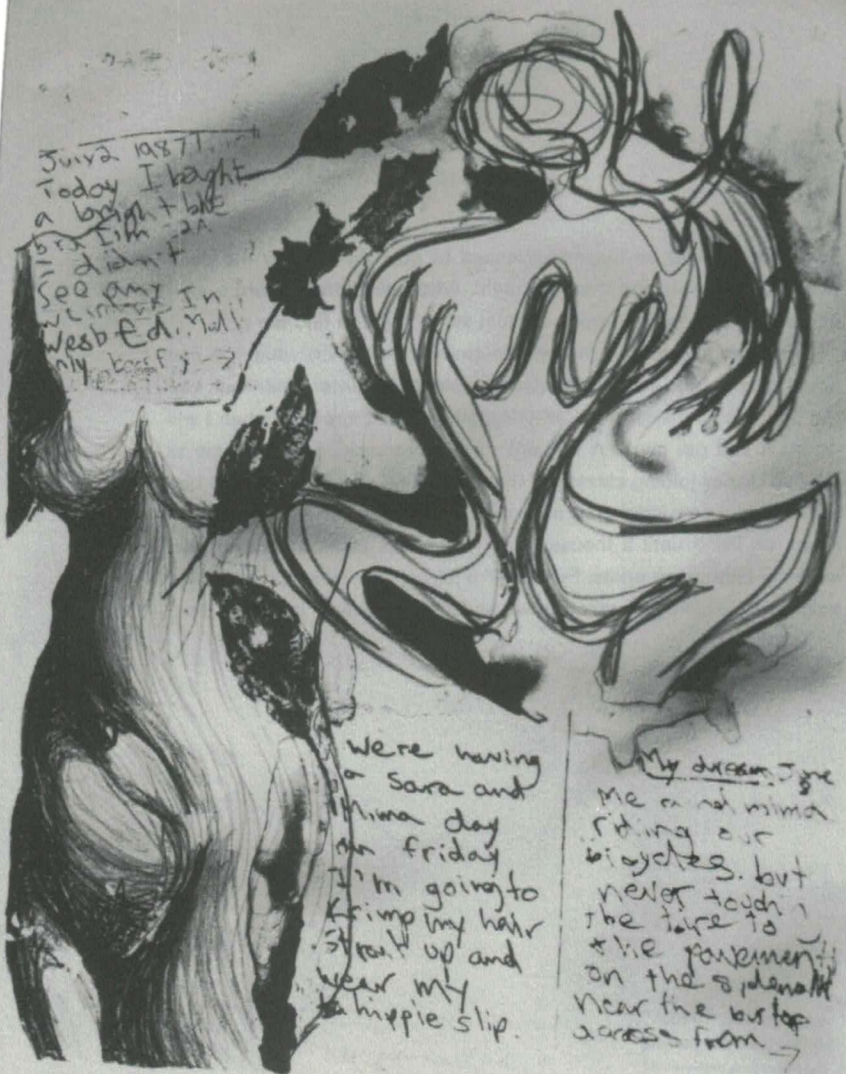 July 2 1987
Today I bought
a bright blue
bra I'm 2A
I didn't
see any
in
West Ed. Mall
only
We're having
a Sara and
Mima day
on friday
I'm going to
krimp my hair
Strait up and
wear my
hippie slip.
My dream June
Me and mima
riding our
bicycles. but
never touch
the tire to
the pavement
on the sidewalk
near the bustop
across from →